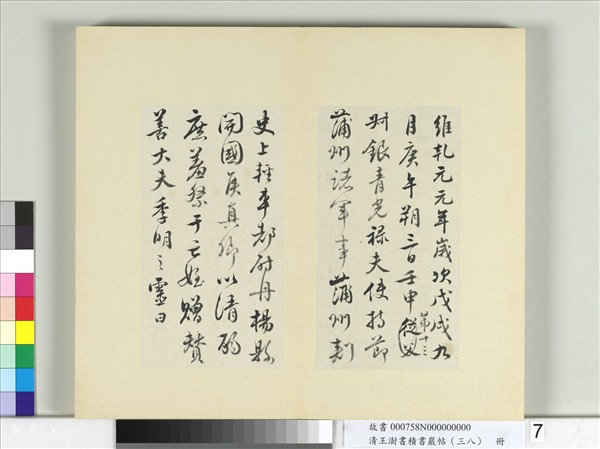 維乾元元年歲次戊戌九
月庚午朔三日壬申第十三
從父
州銀青光祿夫使持節
蒲州諸軍事蒲州刺
史上輕車都尉丹楊縣
開國侯真卿以清酌
庶羞祭于亡姪贈贊
善大夫季明之靈曰
故書 000758N000000000
清王澍書積書巖帖（三八） 冊
7